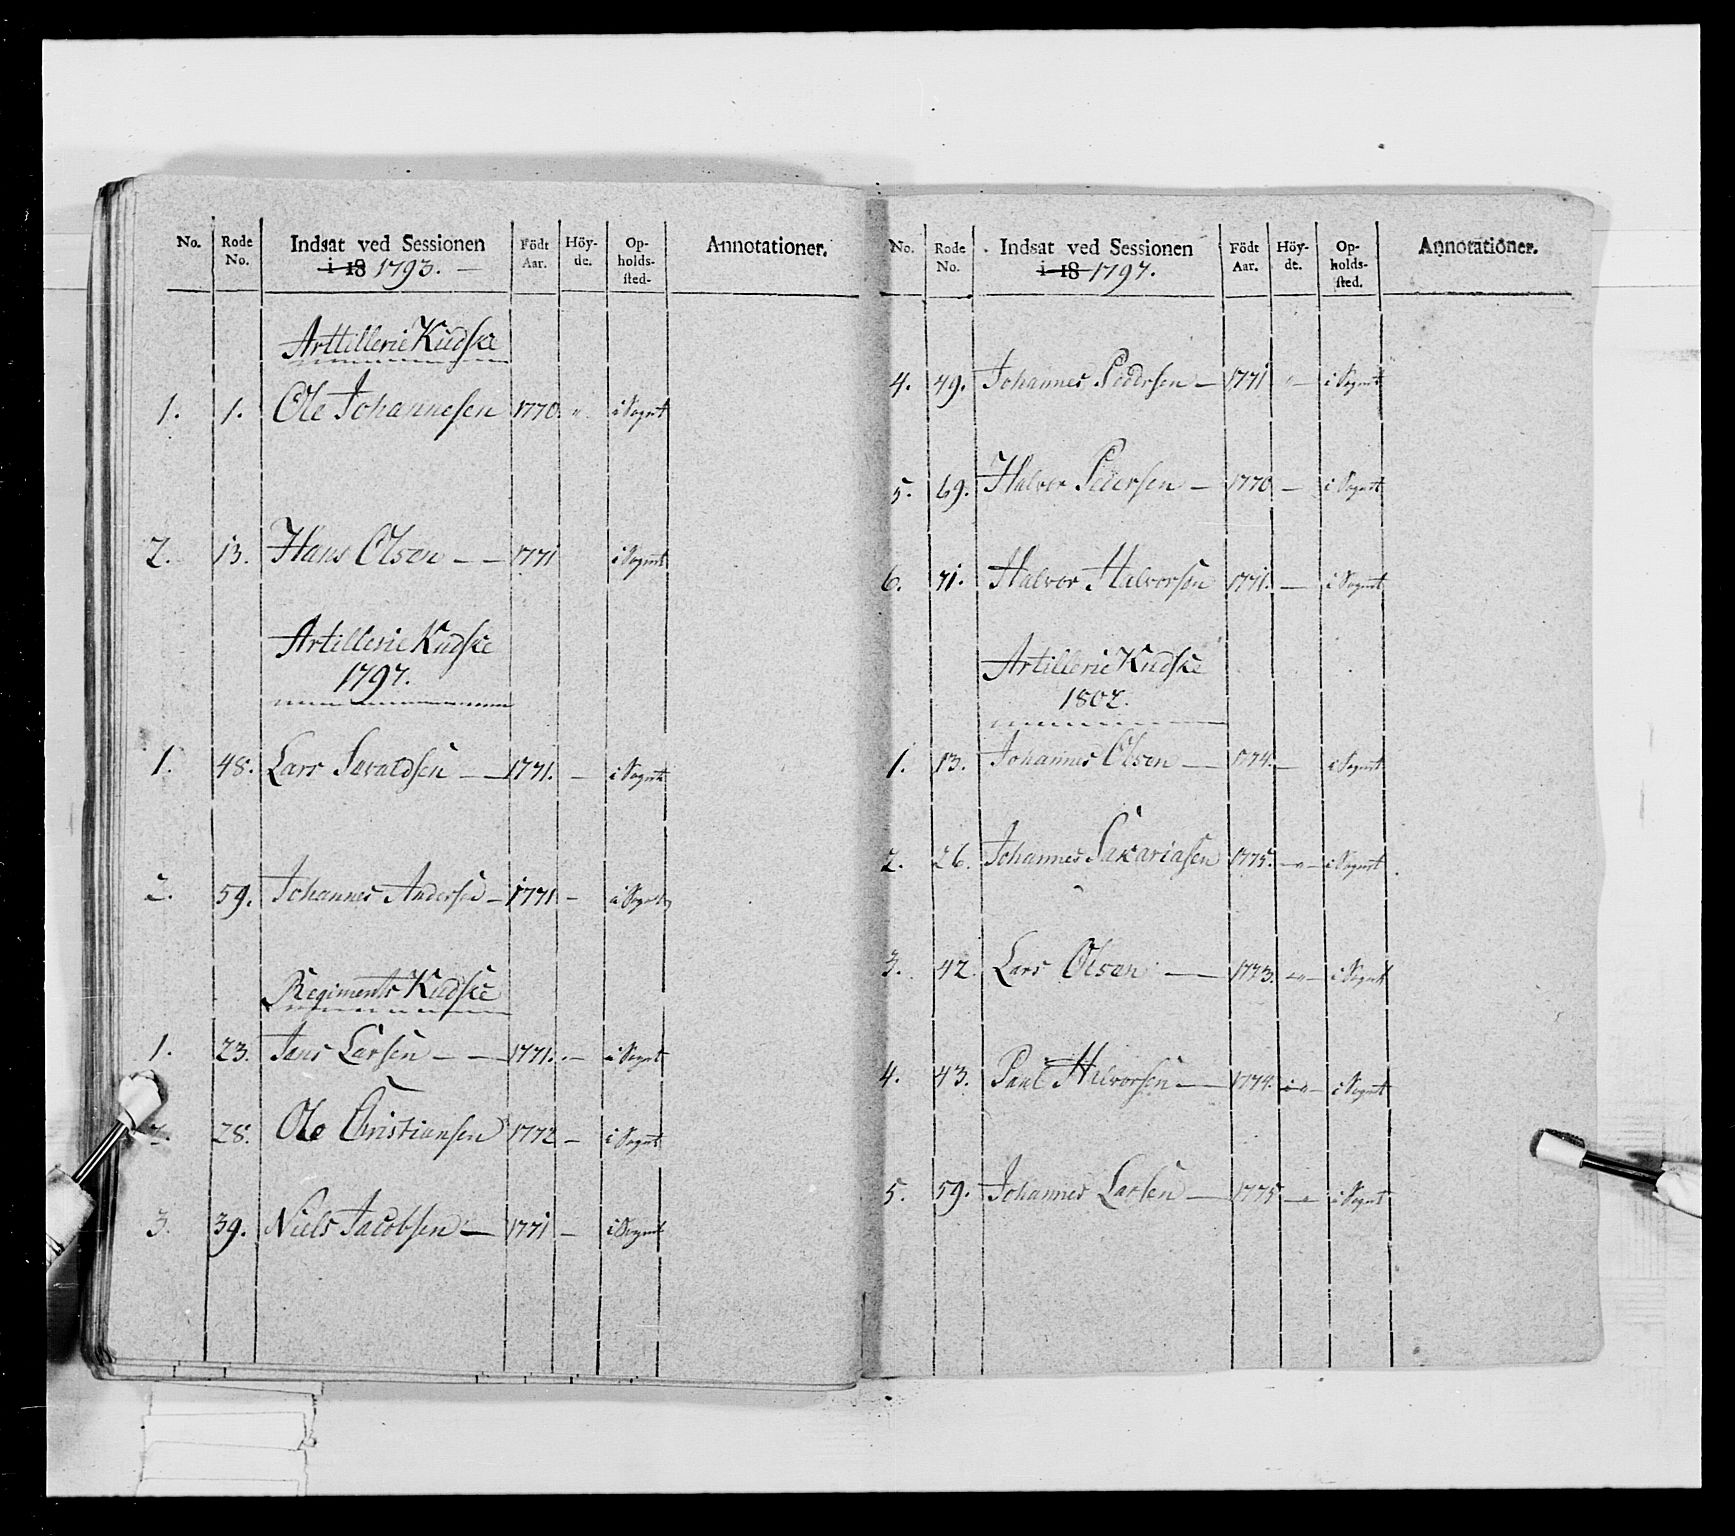 No. Rode No. Indsat ved Sessionen i 18 1793. — Födt Aar. Höy-de. Op-holds-sted. Annotationer.
Arttillerie Kudske
1. 1. Ole Johannesen 1770. " i Sognet
2. 13. Hans Olsen — — 1771 i Sognet
Artillerie Kudske
1797.
1. 48. Lars — 1771. — i Sognet
2. 59. Johannes Andersen — 1771 — i Sognet
Regiments Kudske
1. 23. Jans Larsen — — 1771. — i Sognet
2. 28. Ole Christiansen 1772 — i Sognet
3. 39. Niels Jacobsen — 1771 — i Sognet
No. Rode No. Indsat ved Sessionen i 18 1797. Födt Aar. Höy-de. Op-holds-sted. Annotationer.
4. 49. Johannes Pedersen — 1771 " — i Sognet
5. 69. Halvor Pedersen — 1770 — i Sognet
6. 71. Halvor Halvorsen 1771. — i Sognet
Artillerie Kudske
1802.
1. 13. Johannes Olsen — 1774. — i Sognet
2. 26. Johannes Sacariasen 1775. — " — i Sognet
3. 42. Lars Olsen — 1773. — " — i Sognet
4. 43. Paul Halvorsen — 1774. — " — i Sognet
5. 59. Johannes Larsen — 1775 — " — i Sognet